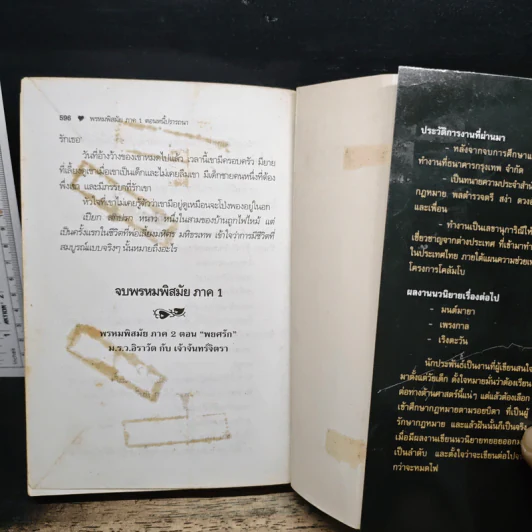 596 ♥ พรหมพิสมัย ภาค 1 ตอนหนี้ปรารถนา
รักเธอ"
วันที่อ้างว้างของเขาหมดไปแล้ว เวลานี้เขามีครอบครัว มียาย
ที่เลี้ยงดูเขาเมื่อเขาเป็นเด็กและไม่เคยลืมเขา มีเด็กชายคนหนึ่งที่ต้อง
พึ่งเขา และมีภรรยาที่รักเขา
หัวใจที่เขาไม่เคยรู้สึกว่าเขามีอยู่ดูเหมือนจะโป่งพองอยู่ในอก
เปียก สกปรก หนาว หนึ่งในสามของบ้านถูกไฟไหม้ แต่
เป็นครั้งแรกในชีวิตที่พ่อเลี้ยงมหิศร มหิธรเทพ เข้าใจว่าการมีชีวิตที่
สมบูรณ์แบบจริงๆ นั้นหมายถึงอะไร
จบพรหมพิสมัย ภาค 1
พรหมพิสมัย ภาค 2 ตอน "พยศรัก"
ม.ร.ว.อิราวัต กับ เจ้าจันทร์จิตรา
ประวัติการงานที่ผ่านมา
- หลังจากจบการศึกษาแ
ทำงานที่ธนาคารกรุงเทพ จำกัด
- เป็นทนายความประจำสำ
กฎหมาย พลตำรวจตรี สง่า ดวง
และเพื่อน
- ทำงานเป็นเลขานุการิณีให้
เชี่ยวชาญจากต่างประเทศ ที่เข้ามาทำ
ในประเทศไทย ภายใต้แผนความช่วยเห
โครงการโคลัมโบ
ผลงานนวนิยายเรื่องต่อไป
- มนต์มายา
- เพรงกาล
- เริงตะวัน
นักประพันธ์เป็นงานที่ผู้เขียนสนใจ
มาตั้งแต่วัยเด็ก ตั้งใจหมายมั่นว่าต้องเรียน
ต่อทางด้านศาสตร์นี้แน่ๆ แต่แล้วต้องเลือก
เข้าศึกษากฎหมายตามรอยบิดา ที่เป็นผู้
รักกฎหมาย และแล้วฝันนั้นก็เป็นจริง
เมื่อมีผลงานเขียนนวนิยายทยอยออกม
เป็นลำดับ และตั้งใจว่าจะเขียนต่อไปจ
กว่าจะหมดไฟ